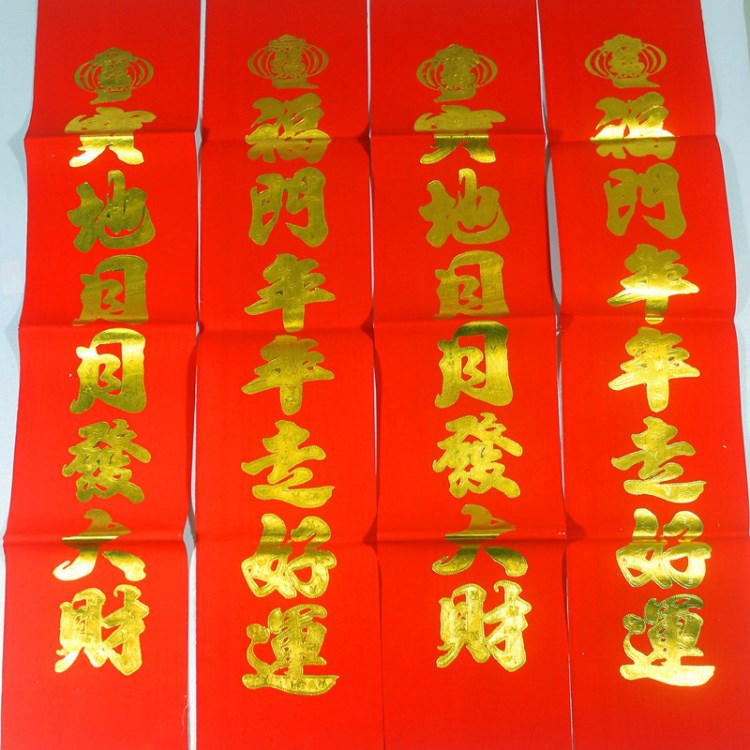 福門年年走好運
寶地月月發大財
福門年年走好運
寶地月月發大財